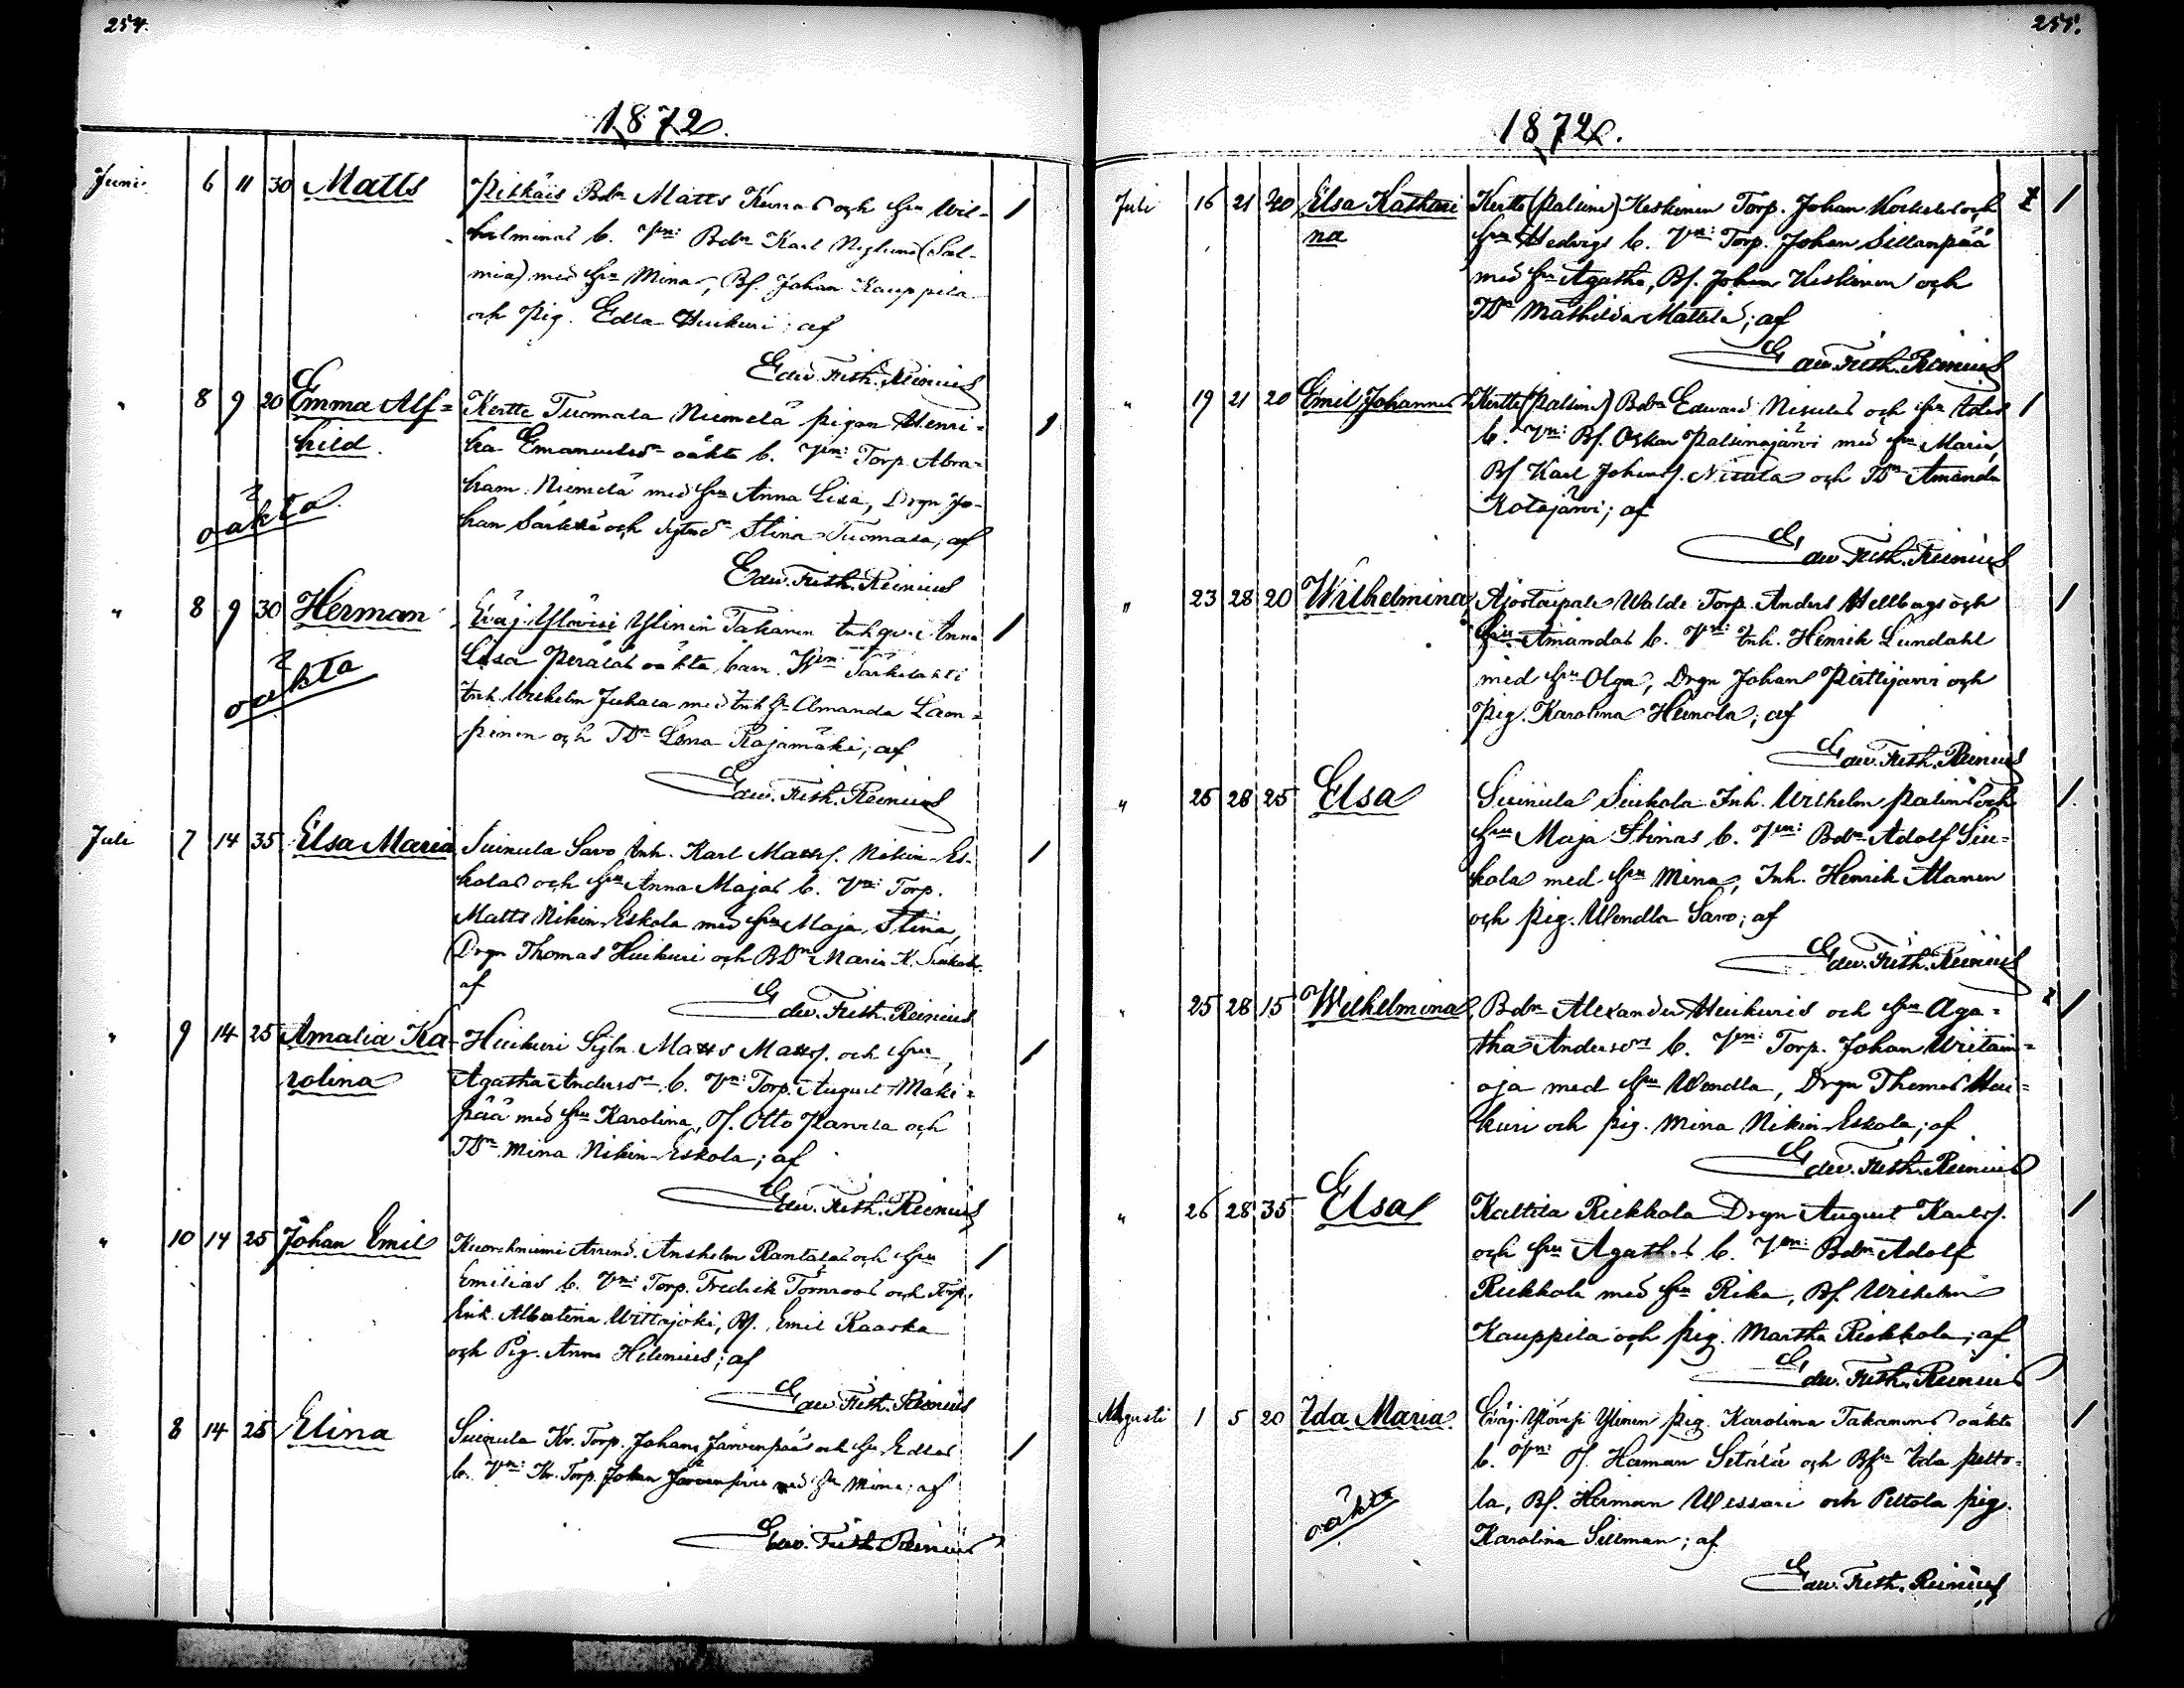 254.
1872.
Juni 6 11 30 Matts Pitkäis Bdn Matts Kunnas och hu Wil-
helminas b. Vn: Bdn Karl Nyglund (Sal-
mia) med hu Mina, Bf. Johan Kauppila
och Pig. Edla Huikuri; af
Edw. Frith. Reinius
" 8 9 20 Emma Alf- Kertte Tuomala Niemelä pigan Henri-
hild. ka Emanuelsdr oäkta b. Vn: Torp. Abra-
oäkta. ham Niemelä med hu Anna Lisa, Drgn Jo-
han Särkkä och Stina Tuomala; af
Edw. Frith. Reinius
" 8 9 30 Herman Eväj. Ylöviri Ylinen Takanen Inh qv. Anna
oäkta Lisa Peräläs oäkta barn. Vn:
Inh. Wilhelm Juhala med Inh H. Amanda Lam-
pinen och TDr Lena Rajamäki; af
Edw. Frith. Reinius
Juli 7 14 35 Elsa Maria Suinula Savo Inh. Karl Matss. Nikin-Es-
kolas och hu Anna Majas b. Vn: Torp.
Matts Nikin-Eskola med hu Maja Stina,
Drgn Thomas Huikuri och BDr Maria K.
af
Edw. Frith. Reinius
" 9 14 25 Amalia Ka- Huikuri Sytn. Matts Matss. och hu
rolina Agatha Andersdrs b. Vn: Torp. August Mäki-
pää med hu Karolina, Of. Otto Panula och
TDr Mina Nikin-Eskola; af
Edw. Frith. Reinius
" 10 14 25 Johan Emil Kuorehniemi Arrend. Anshelm Rantalas och hu
Emilias b. Vn: Torp. Fredrik Törnroos och Torp.
Enk. Albertina Wittajoki, Bf. Emil Kaarka
och Pig. Anna Helenius; af
Edw. Frith. Reinius
8 14 25 Elina Suinula Kr. Torp. Johan Järvenpääs och hu Edlas
b. Vn: Kr. Torp. Johan Järvenpää med hu Mina; af
Edw. Frith. Reinius
255.
1872.
Juli 16 21 20 Elsa Kathari Kertte (Palsina) Keskinen Torp. Johan och
na hu Hedvigs b. Vn: Torp. Johan Sillanpää
med hu Agatha, Bf. Johan Keskinen och
TDr Mathilda Mattila; af
Edw. Frith. Reinius
" 19 21 20 Emil Johannes Kertte (Palsina) Bdn Edward Nisulas och hu Idas
b. Vn: Bf. Oskar Palsinajärvi med hu Maria,
Bf. Karl Johans. Nisula och TDr Amanda
Kotajärvi; af
Edw. Frith. Reinius
" 23 28 20 Wilhelmina Ajostaipale Walde Torp. Anders Hellbergs och
hu Amandas b. Vn: Inh. Henrik Lundahl
med hu Olga, Drgn Johan Pirttijärvi och
Pig. Karolina Heinola; af
Edw. Frith. Reinius
" 25 28 25 Elsa Suinula Siukola Inh. Wilhelm Palins och
hu Maja Stinas b. Vn: Bdn Adolf Siu-
kola med hu Mina, Inh. Henrik Manen
och Pig. Wendla Savo; af
Edw. Frith. Reinius
" 25 28 15 Wilhelmina Bdn Alexander Huikuris och hu Aga-
tha Andersdrs b. Vn: Torp. Johan Wiitain-
oja med hu Wendla, Drgn Thomas Hui-
kuri och Pig. Mina Nikin-Eskola; af
Edw. Frith. Reinius
" 26 28 35 Elsa Kaltila Riekkola Drgn August Karls.
och hu Agathas b. Vn: Bdn Adolf
Riekkola med hu Rika, Bf. Wilhelm
Kauppila och Pig. Martha Riekkola; af
Edw. Frith. Reinius
Augusti 1 5 20 Ida Maria. Eväj. Ylövisi Ylinen Pig. Karolina Takanens oäkta
b. Vn: Of. Herman Setälä och Bfr Ida Pelto-
oäkta la, Bf. Herman Wessari och Peltola Pig.
Karolina Sillman; af
Edw. Frith. Reinius